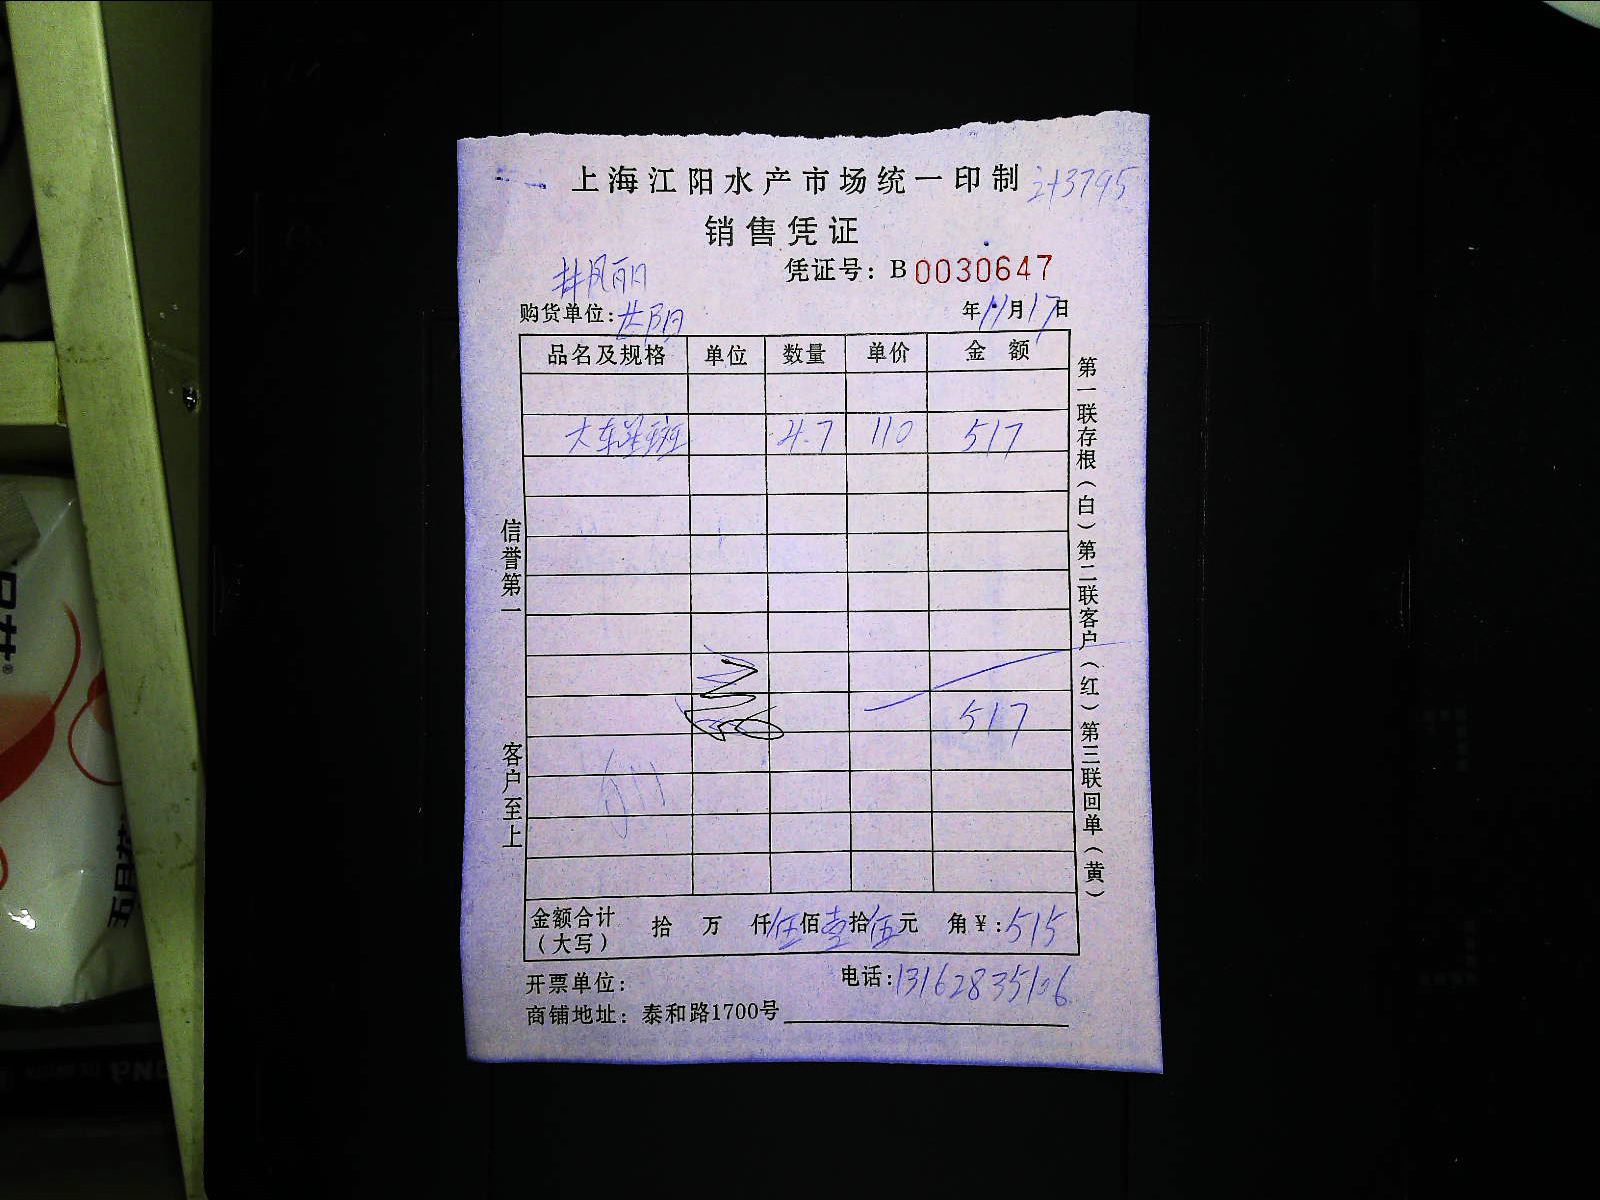 上海江阳水产市场统一印制
销售凭证
凭证号：B 0030647
购货单位：
年11月17日
品名及规格 单位 数量 单价 金额
大东星斑 4.7 110 517
517
金额合计（大写） 拾 万 仟伍佰壹拾伍元 角￥：515
开票单位： 电话：13162835106
商铺地址：泰和路1700号
信誉第一 客户至上
第一联存根（白）第二联客户（红）第三联回单（黄）